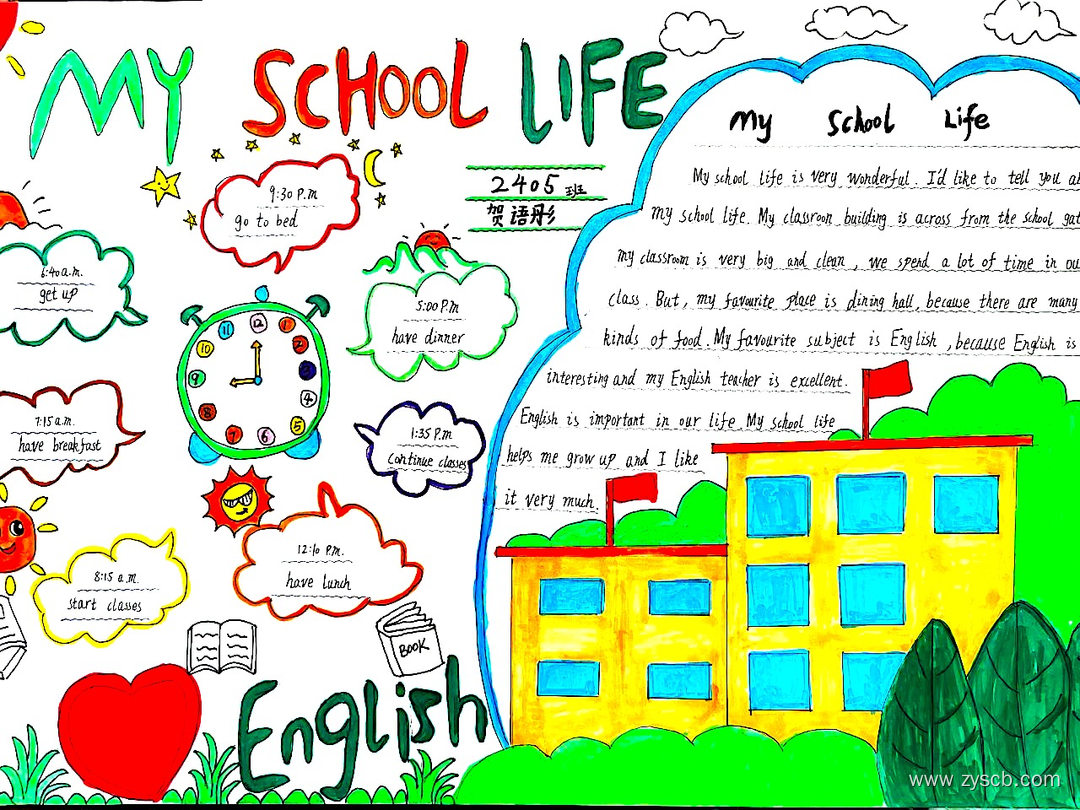 MY SCHOOL LIFE
2405班
贺语彤
9:30 P.m
go to bed
6:40 a.m.
get up
5:00 P.m
have dinner
12
11
10
9
8
7
6
5
4
3
2
1
7:15 a.m.
have breakfast
1:35 P.m
Continue classes
12:10 P.m.
have lunch
8:15 a.m.
start classes
BOOK
English
My School Life
My school life is very wonderful. I'd like to tell you
my school life. My classroon building is across from the school
my classroom is very big and clean, we spend a lot of time in
class. But, my favourite place is dining hall, because there are many
kinds of food. My favourite subject is English, because English is
interesting and my English teacher is excellent.
English is important in our life. My school life
helps me grow up and I like
it very much.
www.zyscb.com